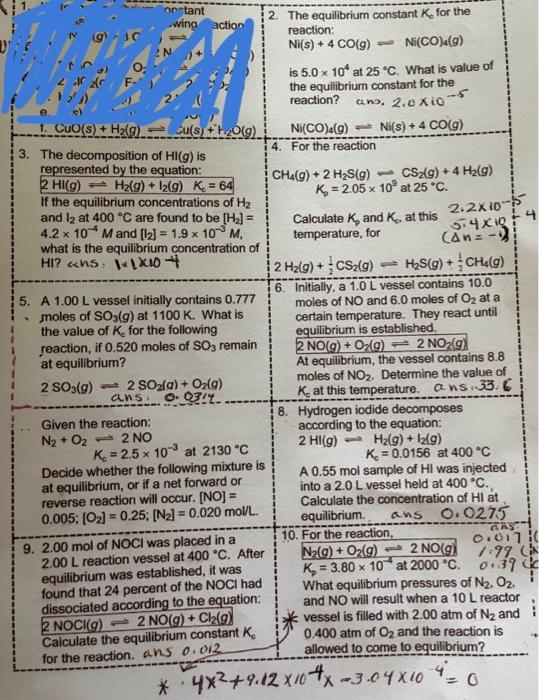 1.
onstant
wing
action
f. CuO(s) + H₂(g) ⇌ Cu(s) + H₂O(g)
2. The equilibrium constant Kc for the
reaction:
Ni(s) + 4 CO(g) ⇌ Ni(CO)₄(g)
is 5.0 × 10⁴ at 25 °C. What is value of
the equilibrium constant for the
reaction? ans. 2.0 x10⁻⁵
Ni(CO)₄(g) ⇌ Ni(s) + 4 CO(g)
3. The decomposition of HI(g) is
represented by the equation:
2 HI(g) ⇌ H₂(g) + I₂(g) Kc = 64
If the equilibrium concentrations of H₂
and I₂ at 400 °C are found to be [H₂] =
4.2 × 10⁻⁴ M and [I₂] = 1.9 × 10⁻³ M,
what is the equilibrium concentration of
HI? ans: 1.1 x10⁻⁴
4. For the reaction
CH₄(g) + 2 H₂S(g) ⇌ CS₂(g) + 4 H₂(g)
Kp = 2.05 × 10⁹ at 25 °C.
Calculate Kp and Kc. at this
temperature, for
2.2x10⁻⁵
5.4 x10⁻⁴
(Δn = -1)
2 H₂(g) + ½ CS₂(g) ⇌ H₂S(g) + ½ CH₄(g)
5. A 1.00 L vessel initially contains 0.777
moles of SO₃(g) at 1100 K. What is
the value of Kc for the following
reaction, if 0.520 moles of SO₃ remain
at equilibrium?
2 SO₃(g) ⇌ 2 SO₂(g) + O₂(g)
ans. 0.0314
6. Initially, a 1.0 L vessel contains 10.0
moles of NO and 6.0 moles of O₂ at a
certain temperature. They react until
equilibrium is established.
2 NO(g) + O₂(g) ⇌ 2 NO₂(g)
At equilibrium, the vessel contains 8.8
moles of NO₂. Determine the value of
Kc at this temperature. ans. 33.6
Given the reaction:
N₂ + O₂ ⇌ 2 NO
Kc = 2.5 × 10⁻³ at 2130 °C
Decide whether the following mixture is
at equilibrium, or if a net forward or
reverse reaction will occur. [NO] =
0.005; [O₂] = 0.25; [N₂] = 0.020 mol/L.
8. Hydrogen iodide decomposes
according to the equation:
2 HI(g) ⇌ H₂(g) + I₂(g)
Kc = 0.0156 at 400 °C
A 0.55 mol sample of HI was injected
into a 2.0 L vessel held at 400 °C.
Calculate the concentration of HI at
equilibrium. ans 0.0275
9. 2.00 mol of NOCl was placed in a
2.00 L reaction vessel at 400 °C. After
equilibrium was established, it was
found that 24 percent of the NOCl had
dissociated according to the equation:
2 NOCl(g) ⇌ 2 NO(g) + Cl₂(g)
Calculate the equilibrium constant Kc
for the reaction. ans 0.012
10. For the reaction,
N₂(g) + O₂(g) ⇌ 2 NO(g)
Kp = 3.80 × 10⁻⁴ at 2000 °C.
ans
0.017
1.99
0.39
What equilibrium pressures of N₂, O₂,
and NO will result when a 10 L reactor
* vessel is filled with 2.00 atm of N₂ and
0.400 atm of O₂ and the reaction is
allowed to come to equilibrium?
* . 4x² + 9.12 x 10⁻⁴x - 3.04 x 10⁻⁴ = 0